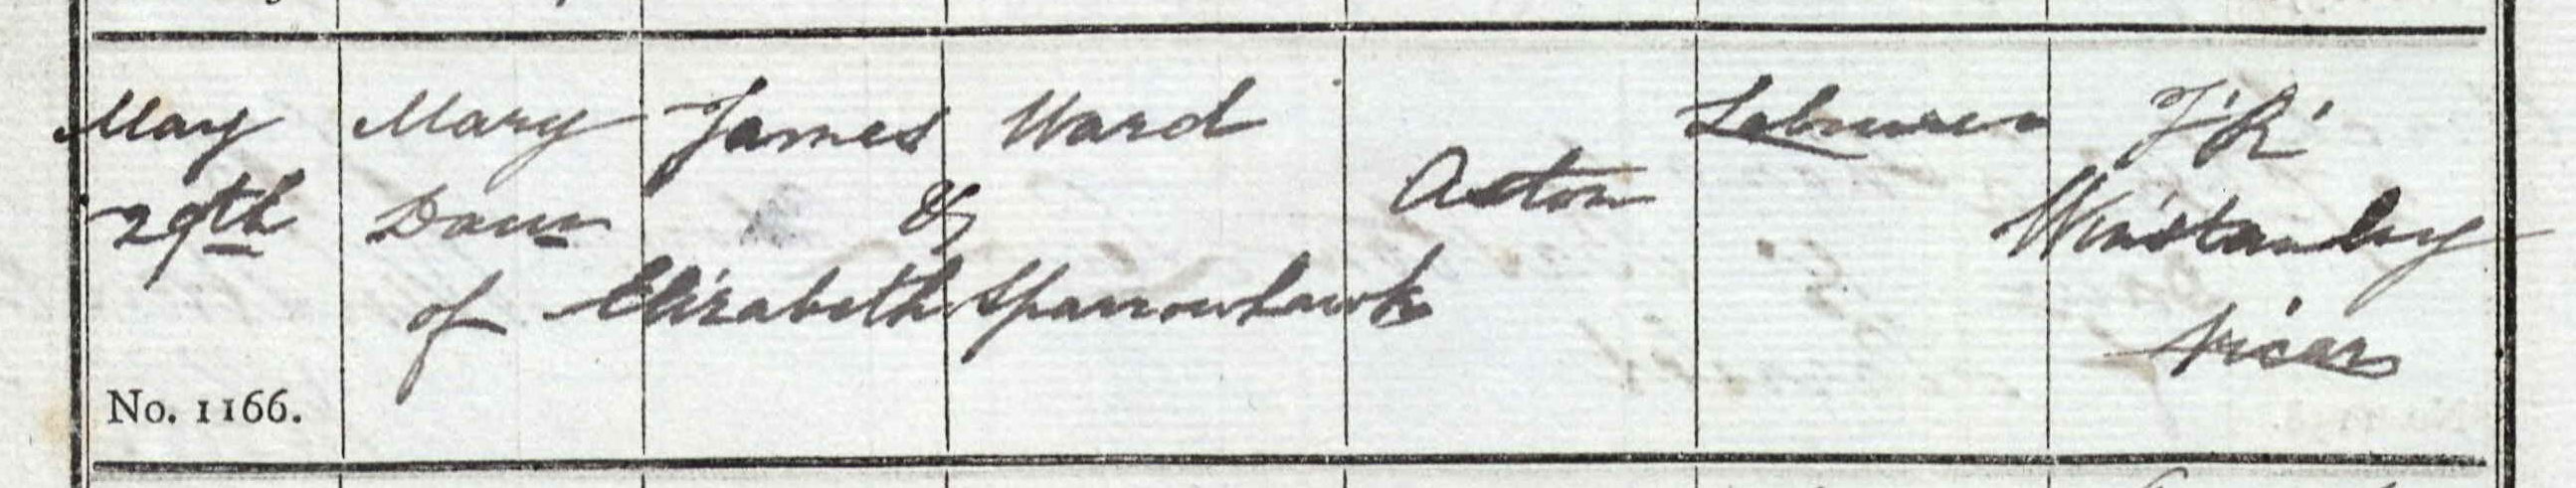 May Mary James Ward Labourer J. R.
29th Daur & Aston Winstanley
of Elizabeth Sparrowhawk Vicar
No. 1166.